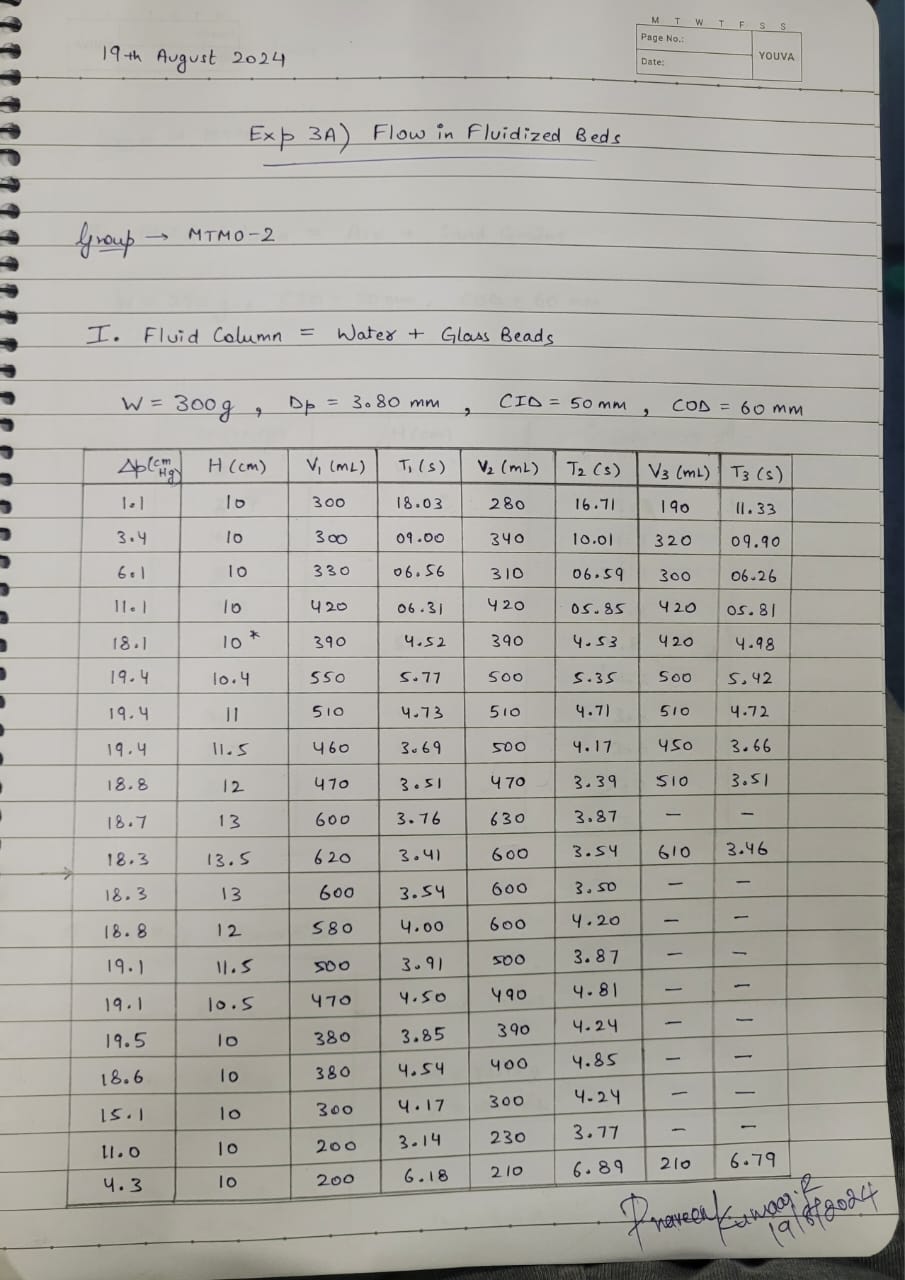 M T W T F S S
Page No.:
YOUVA
Date:
19th August 2024
Exp 3A) Flow in Fluidized Beds
Group → MTMO-2
I. Fluid Column = Water + Glass Beads
W = 300g , Dp = 3.80 mm , CID = 50 mm , COD = 60 mm
Δp(cm Hg) H (cm) V₁ (mL) T₁ (s) V₂ (mL) T₂ (s) V₃ (mL) T₃ (s)
1.1 10 300 18.03 280 16.71 190 11.33
3.4 10 300 09.00 340 10.01 320 09.90
6.1 10 330 06.56 310 06.59 300 06.26
11.1 10 420 06.31 420 05.85 420 05.81
18.1 10* 390 4.52 390 4.53 420 4.98
19.4 10.4 550 5.77 500 5.35 500 5.42
19.4 11 510 4.73 510 4.71 510 4.72
19.4 11.5 460 3.69 500 4.17 450 3.66
18.8 12 470 3.51 470 3.39 510 3.51
18.7 13 600 3.76 630 3.87 – –
18.3 13.5 620 3.41 600 3.54 610 3.46
→
18.3 13 600 3.54 600 3.50 – –
18.8 12 580 4.00 600 4.20 – –
19.1 11.5 500 3.91 500 3.87 – –
19.1 10.5 470 4.50 490 4.81 – –
19.5 10 380 3.85 390 4.24 – –
18.6 10 380 4.54 400 4.85 – –
15.1 10 300 4.17 300 4.24 – –
11.0 10 200 3.14 230 3.77 – –
4.3 10 200 6.18 210 6.89 210 6.79
19/8/2024